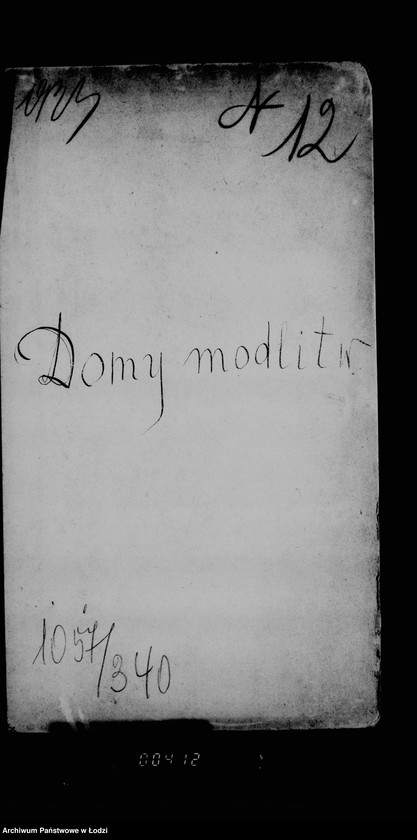 N 12
Domy modlitw
1057/340
00412
Archiwum Państwowe w Łodzi